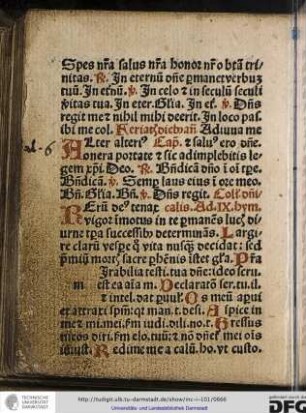 Spes nr̄a salus nr̄a honor nr̄ o btā tri
nitas. ℟. In eternū dn̄e ꝑmanet verbuꝫ
tuū. In etnū. ℣. In celo ⁊ in seculū seculi
v̄itas tua. In eter. Gl̄ia. In et. ℣. Dn̄s
regit me ⁊ nihil mihi deerit. In loco pas
bi me col. Adiuua me
Alter alteri⁹ Cap. ⁊ salu⁹ ero dn̄e.
onera portate ⁊ sic adimplebitis le
gem xp̄i. Deo. ℟. Bn̄dicā dn̄o ī oī tp̄e.
Bn̄dicā. ℣. Semp̲ laus eius ī ore meo.
Bn̄. Gl̄ia. Bn̄. ℣. Dn̄s regit. Coll. dn̄i
Rerū de⁹ tenax calis. Ad.IX.hym.
vigor īmotus in te ꝑmanēs luci⁹ di
urne tp̄a successib⁹ determinās. Largi
re clarū vesꝑe q̄ vita nusqꝫ decidat: sed
p̄miū mort⁹ sacre ꝑhēnis īstet gl̄a. P̄r̄a
Irabilia testi. tua dn̄e: ideo scru.
m est ea aīa m. Declaratō ser. tu. il.
⁊ intel. dat puul. Os meū aꝑui
et attraxi spm̄: qꝛ man. t. desi. Aspice in
me ⁊ mi. mei. ẜm iudi. dili. no. t. Gressus
meos diri. ẜm elo. tuū: ⁊ nō dn̄et mei oīs
iniust. Redime me a calū. ho. vt custo.
al. 6
TECHNISCHE
UNIVERSITÄT
DARMSTADT
http://tudigit.ulb.tu-darmstadt.de/show/inc-i-101/0666
Universitäts- und Landesbibliothek Darmstadt
gefördert durch die
DFG